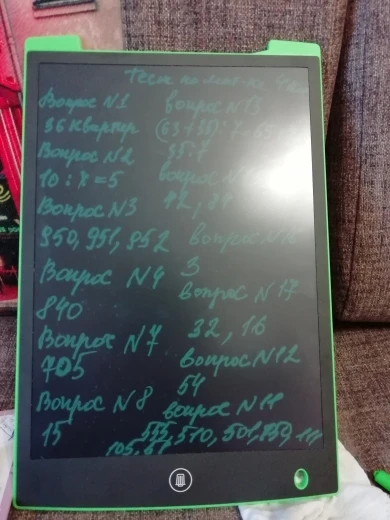 Тест по мат-ке 4
Вопрос N1
36 квартир
Вопрос N2
10 : х = 5
Вопрос N3
950, 951, 952
Вопрос N4
840
Вопрос N7
705
Вопрос N8
15
вопрос N13
(63+35):7=63:7
35:7
вопрос
42, 84
вопрос N16
3
вопрос N17
32, 16
вопрос N12
54
вопрос N11
510, 501,